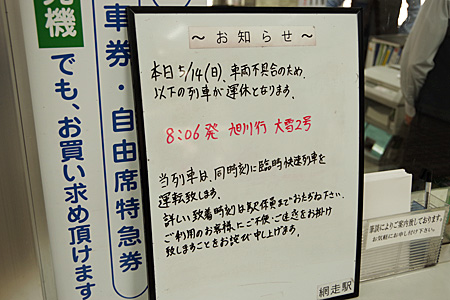 機
でも、お買い求め頂けます
車券・自由席特急券
～お知らせ～
本日5/14(日)、車両不具合のため、
以下の列車が運休となります。
8:06発 旭川行 大雪2号
当列車は、同時刻に臨時快速列車を
運転致します。
詳しい致着時刻は駅係員までおたずね下さい。
ご利用のお客様にご不便・ご迷惑をお掛け
致しますことをお詫び申し上げます。
網走駅
筆談によりご案内致しております。
お気軽にお申し付け下さい。